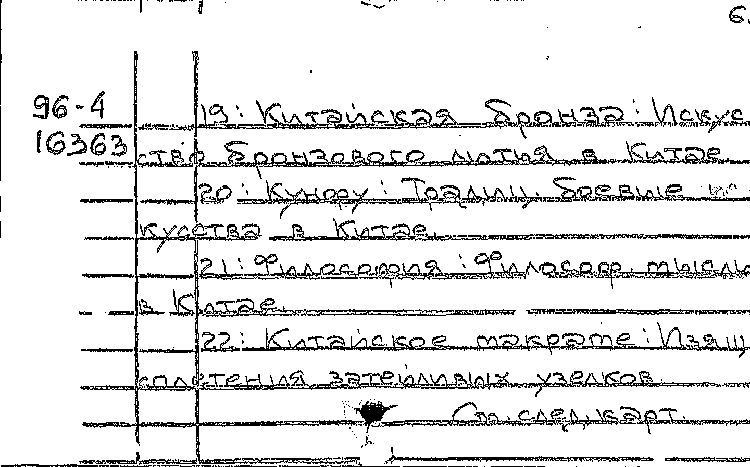 6.
96-4
16363
19: Китайская бронза: Искус
ство бронзового литья в Китае
20: Кунфу: Традиц. боевые ис
кусства в Китае.
21: Философия: Философ. мысль
в Китае.
22: Китайское макраме: Изящ
сплетения затейливых узелков
См. след. карт.